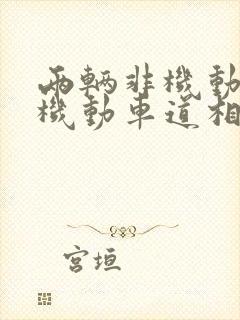 兩輛非機動
機動車道相
宮垣